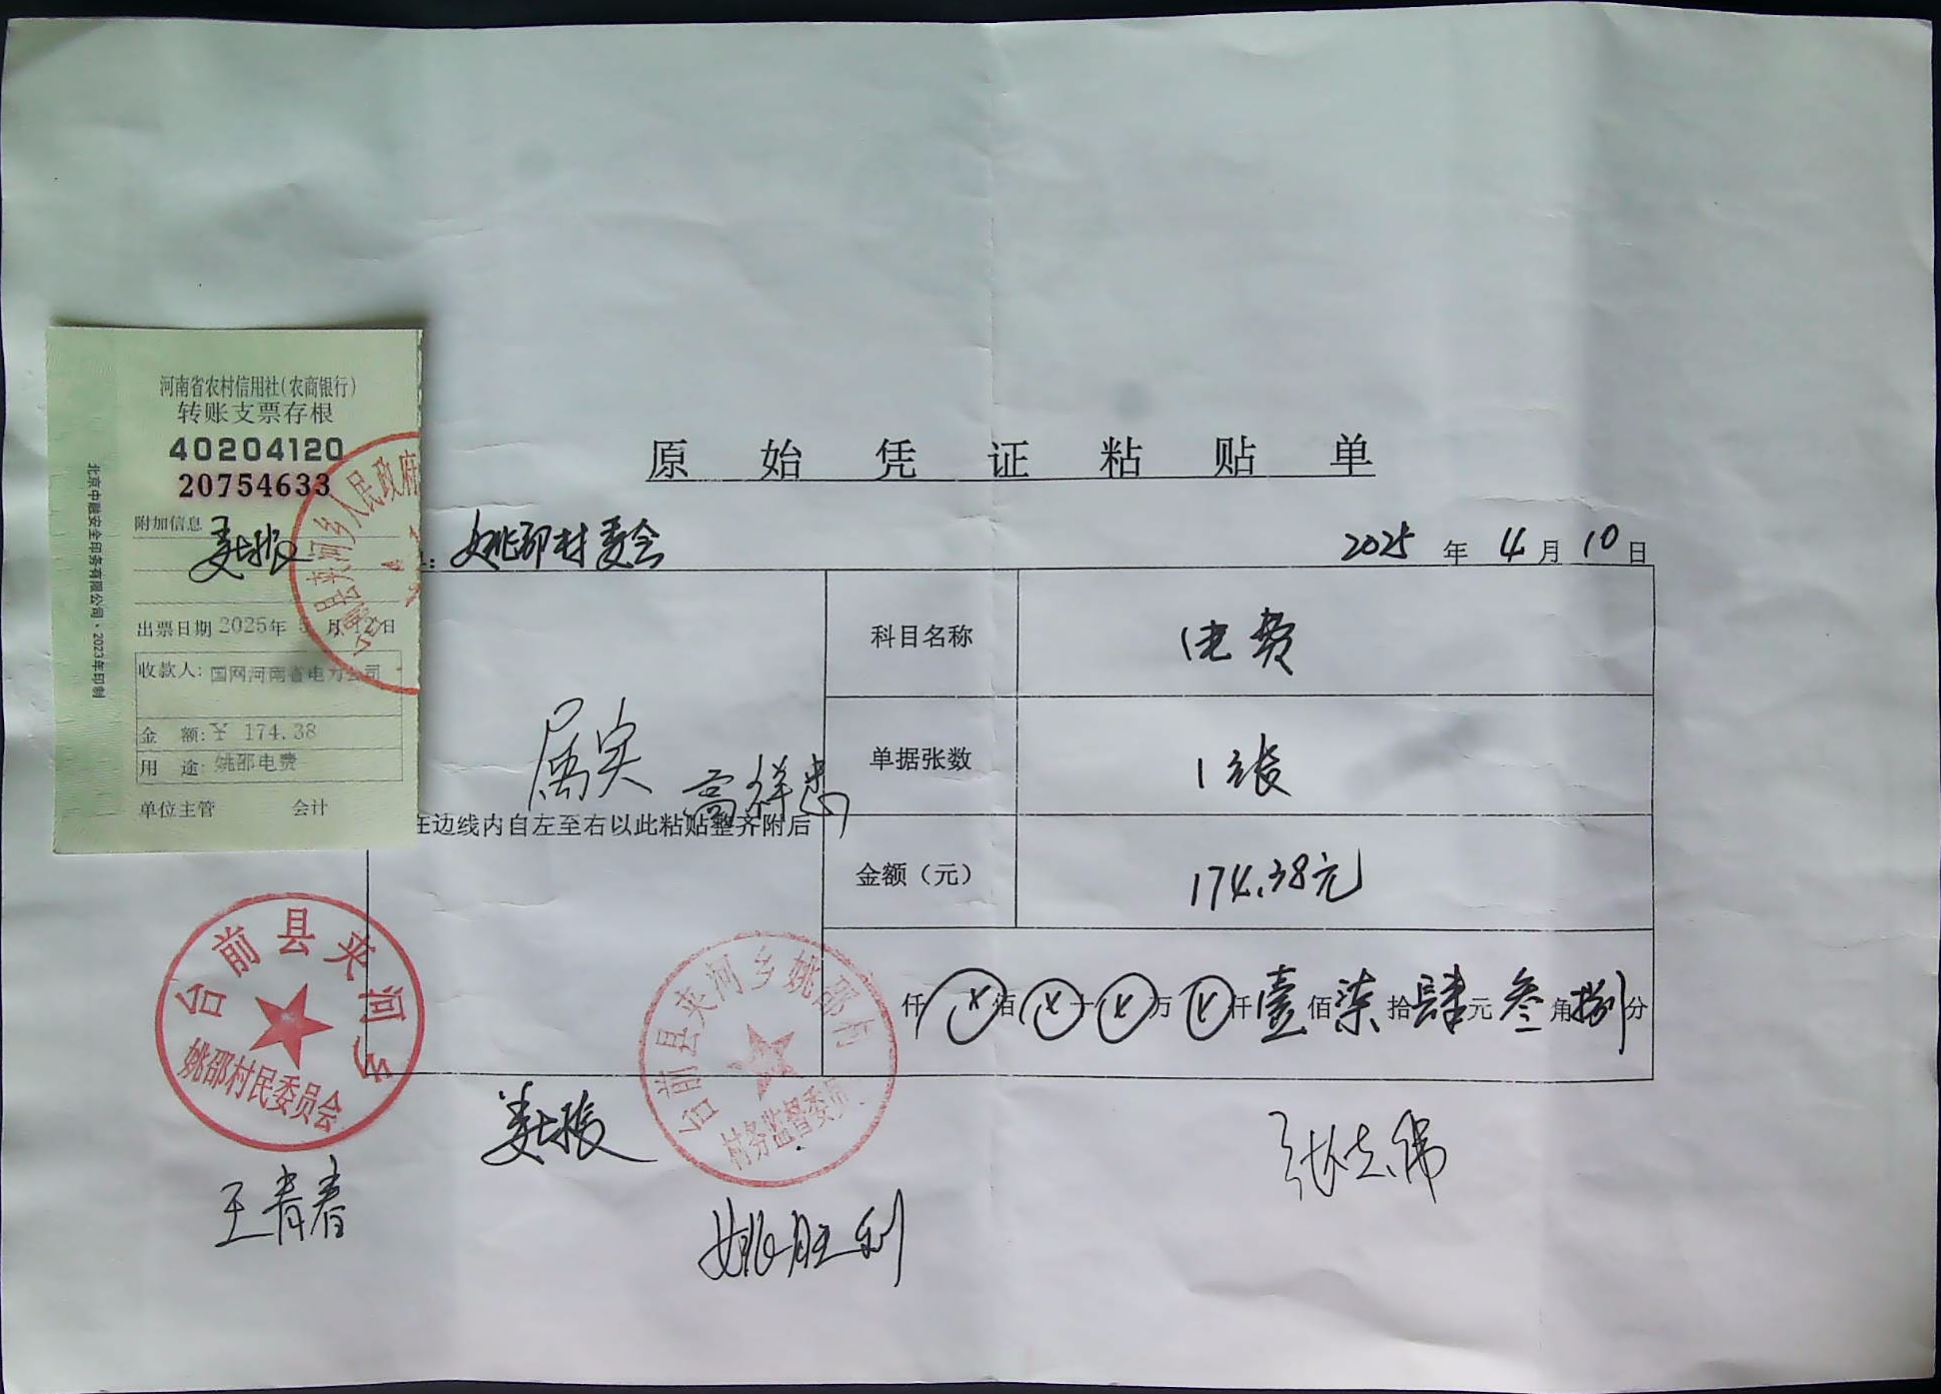 河南省农村信用社(农商银行)
转账支票存根
40204120
20754633
附加信息
姜振
出票日期 2025年5月12日
收款人: 国网河南省电力公司
金 额: ¥ 174.38
用 途: 姚邵电费
单位主管 会计
北京中融安全印务有限公司·2023年印制
台前县夹河乡人民政府
原始凭证粘贴单
: 姚邵村委会
2025 年 4 月 10 日
科目名称 电费
单据张数 1张
金额（元） 174.38元
属实 高祥忠
在边线内自左至右以此粘贴整齐附后
仟 ⓧ 佰 ⓧ 十 ⓧ 万 ⓧ 仟 壹 佰 柒 拾 肆 元 叁 角 捌 分
台前县夹河乡
姚邵村民委员会
台前县夹河乡姚邵村
村务监督委员
王青春
姚胜利
张志伟